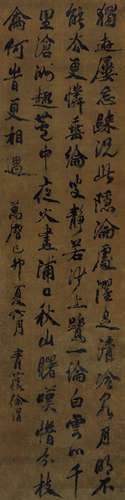 獨遊屢忘歸況此隱淪處濯足清泠泉月明不
能去更憐垂綸叟靜若沙上鷺一論白雲心千
里滄洲趣蘆中夜火盡浦口秋山曙嘆惜分枝
禽何時更相遇 萬曆己卯夏月 青藤徐渭